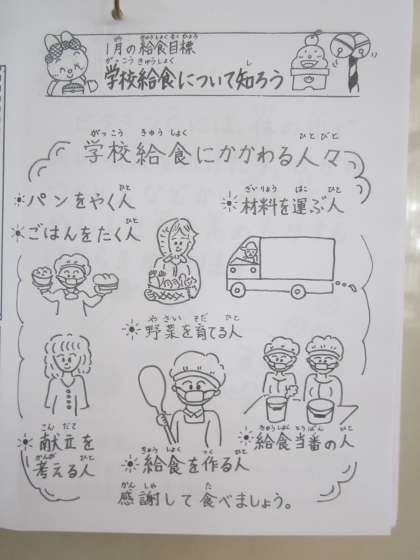 1月の給食目標
学校給食について知ろう
学校給食にかかわる人々
パンをやく人
ごはんをたく人
材料を運ぶ人
野菜を育てる人
献立を
考える人
給食を作る人
給食当番の人
感謝して食べましょう。